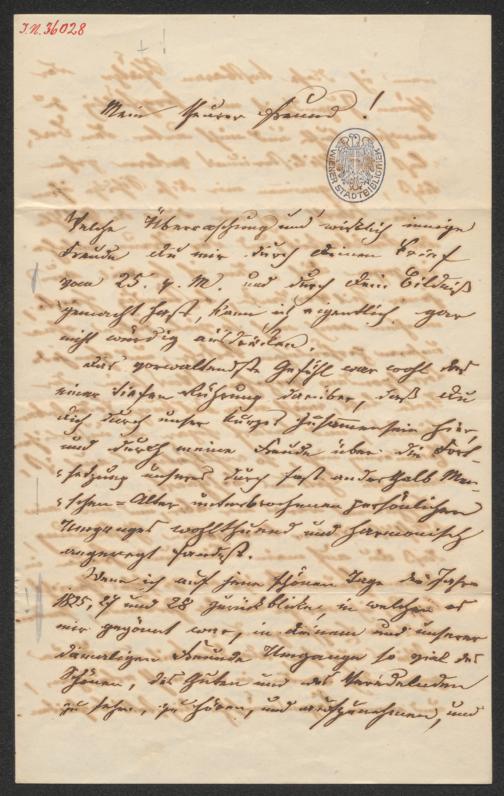 J.N. 36028
Mein theurer Freund!
WIENER STADTBIBLIOTHEK
Welche Überraschung und wirklich innige
Freude Du mir durch Deinen Brief
vom 25. v. M. und durch Dein Bildniß
gemacht hast, kann ich eigentlich gar
nicht würdig ausdrücken.
Das vorwaltendste Gefühl war wohl das
einer tiefen Rührung darüber, daß Du
Dich durch unser kurzes Zusammensein hier,
und durch meine Freude über die Fort-
setzung unseres durch fast anderthalb Men-
schen-Alter unterbrochenen persönlichen
Umganges wohlthuend und harmonisch
angeregt fandest.
Wenn ich auf jene schönen Tage der Jahre
1825, 27 und 28 zurückblicke, in welchen es
mir gegönnt war, in Deinem und unserer
damaligen Freunde Umgange so viel des
Schönen, des Guten und des Veredelnden
zu sehen, zu hören, und aufzunehmen, und